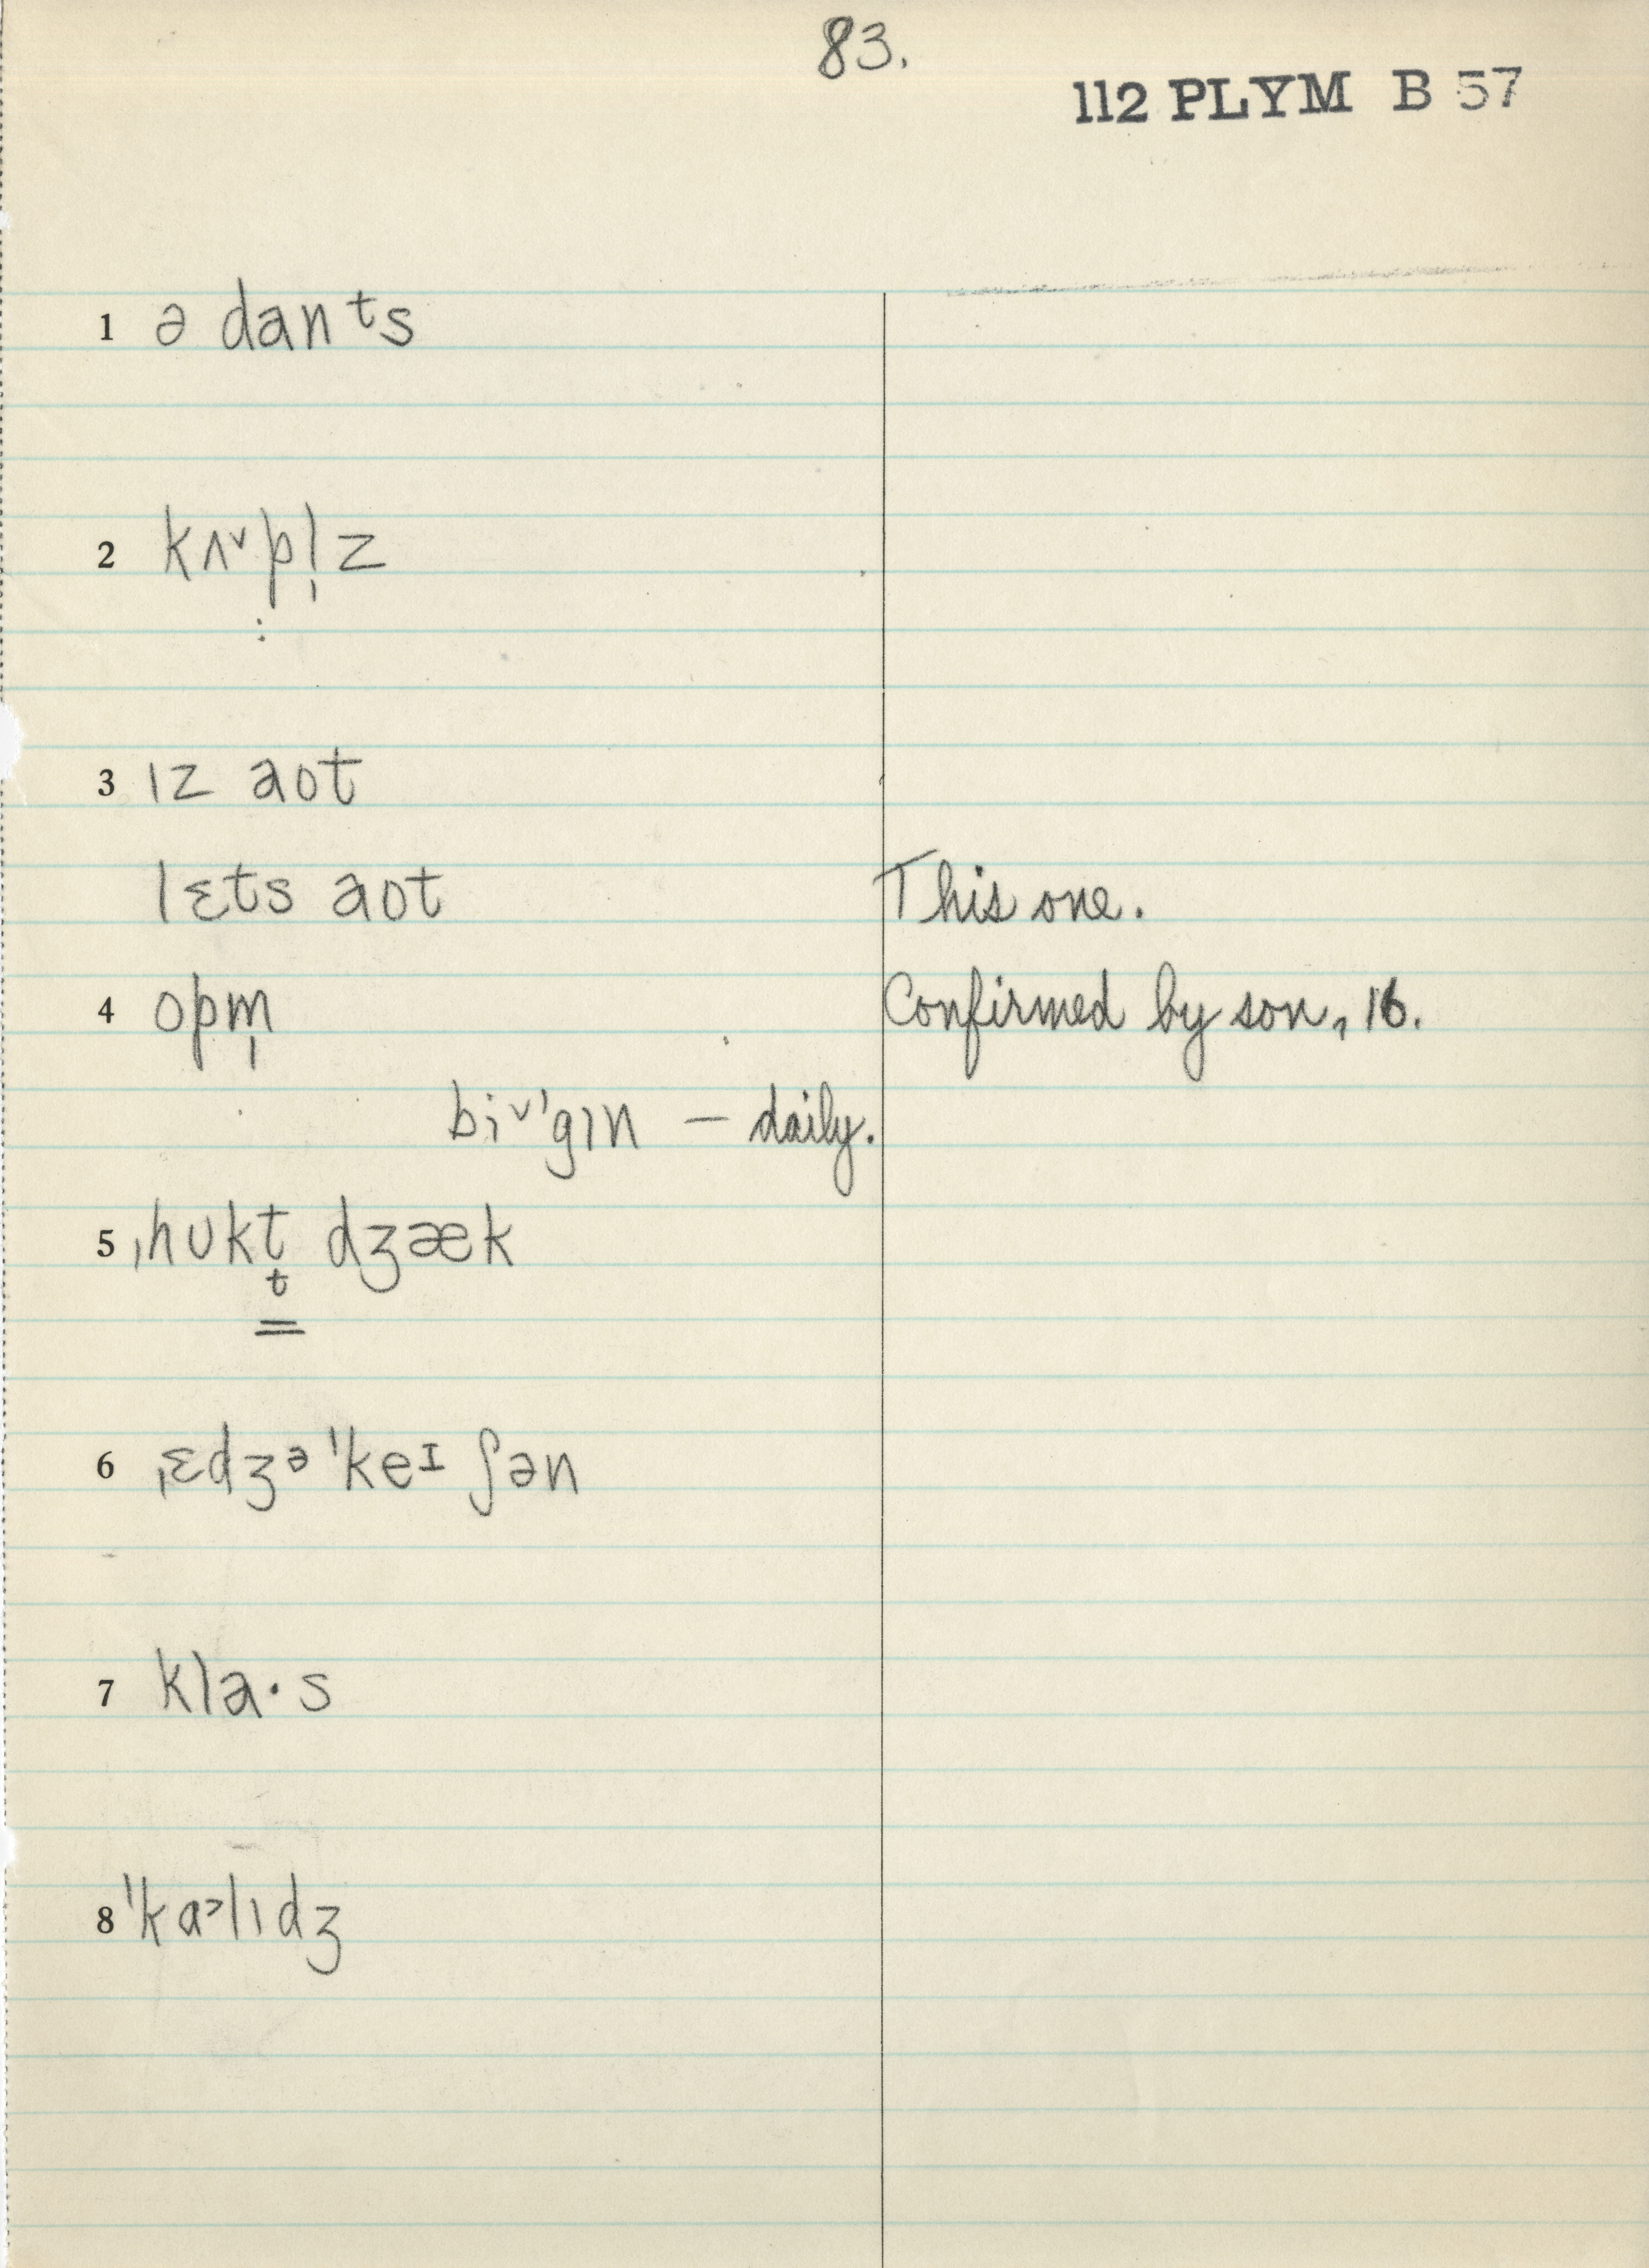 83.
112 PLYM B 57
1 ə danᵗs
2 kʌ˅pl̩z
:
3 ɪz aot
lɛts aot This one.
4 opm̩ Confirmed by son, 16.
bi˅ˈgɪn — daily.
5 ˌhʊkt̬ dʒæk
6 ˌɛdʒᵊˈkeᶦʃən
7 kla·s
8 ˈkɑ˃lɪdʒ